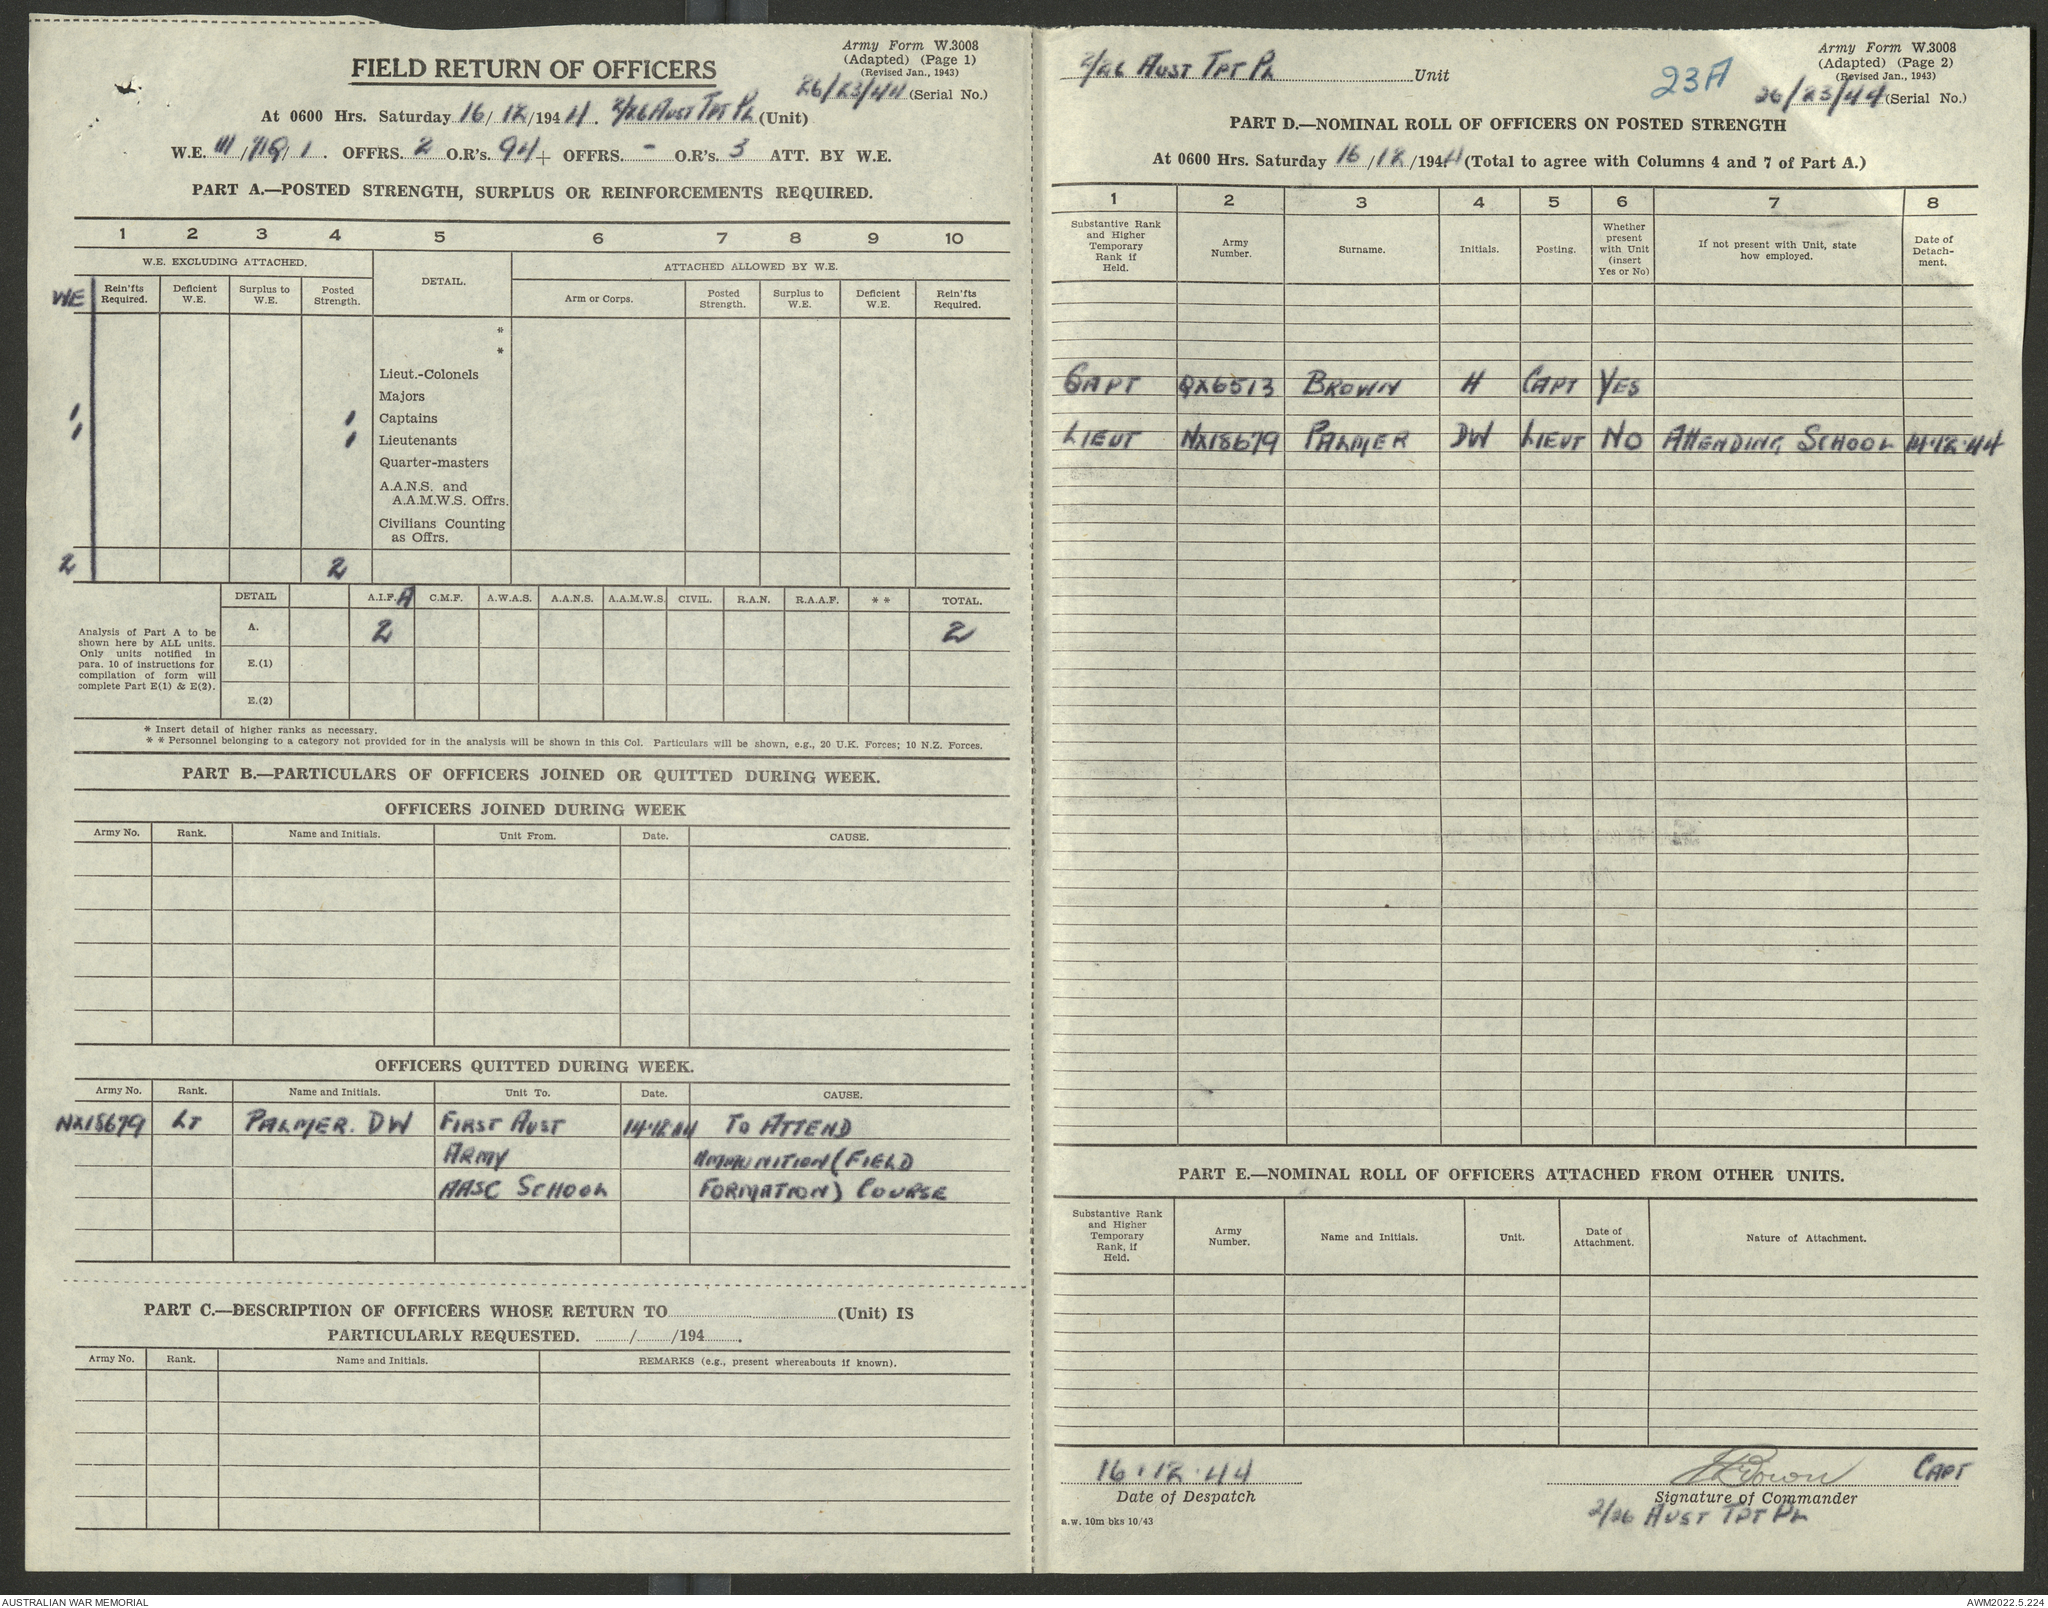 Army Form W.3008
(Adapted) (Page 1)
(Revised Jan., 1943)
FIELD RETURN OF OFFICERS
26/23/44 (Serial No.)
At 0600 Hrs. Saturday 16/12/1944. 2/26 AUST TPT PL (Unit)
W.E. III/719/1. OFFRS. 2 O.R's. 94 + OFFRS. - O.R's. 3 ATT. BY W.E.
PART A.—POSTED STRENGTH, SURPLUS OR REINFORCEMENTS REQUIRED.
1 2 3 4 5 6 7 8 9 10
W.E. EXCLUDING ATTACHED. DETAIL. ATTACHED ALLOWED BY W.E.
WE Rein'fts Required. Deficient W.E. Surplus to W.E. Posted Strength. Arm or Corps. Posted Strength. Surplus to W.E. Deficient W.E. Rein'fts Required.
*
*
Lieut.-Colonels
Majors
1 1 Captains
1 1 Lieutenants
Quarter-masters
A.A.N.S. and
A.A.M.W.S. Offrs.
Civilians Counting
as Offrs.
2 2
DETAIL A.I.F. A C.M.F. A.W.A.S. A.A.N.S. A.A.M.W.S. CIVIL. R.A.N. R.A.A.F. * * TOTAL.
A. 2 2
Analysis of Part A to be
shown here by ALL units.
Only units notified in
para. 10 of instructions for
compilation of form will
complete Part E(1) & E(2).
E.(1)
E.(2)
* Insert detail of higher ranks as necessary.
* * Personnel belonging to a category not provided for in the analysis will be shown in this Col. Particulars will be shown, e.g., 20 U.K. Forces; 10 N.Z. Forces.
PART B.—PARTICULARS OF OFFICERS JOINED OR QUITTED DURING WEEK.
OFFICERS JOINED DURING WEEK
Army No. Rank. Name and Initials. Unit From. Date. CAUSE.
OFFICERS QUITTED DURING WEEK.
Army No. Rank. Name and Initials. Unit To. Date. CAUSE.
NX18679 LT PALMER. DW FIRST AUST 14.12.44 TO ATTEND
ARMY AMMUNITION (FIELD
AASC SCHOOL FORMATION) COURSE
PART C.—DESCRIPTION OF OFFICERS WHOSE RETURN TO (Unit) IS
PARTICULARLY REQUESTED. / /194 .
Army No. Rank. Name and Initials. REMARKS (e.g., present whereabouts if known).
2/26 AUST TPT PL Unit
23A
Army Form W.3008
(Adapted) (Page 2)
(Revised Jan., 1943)
26/23/44 (Serial No.)
PART D.—NOMINAL ROLL OF OFFICERS ON POSTED STRENGTH
At 0600 Hrs. Saturday 16/12/1944 (Total to agree with Columns 4 and 7 of Part A.)
1 2 3 4 5 6 7 8
Substantive Rank and Higher Temporary Rank if Held. Army Number. Surname. Initials. Posting. Whether present with Unit (insert Yes or No) If not present with Unit, state how employed. Date of Detach-ment.
CAPT QX6513 BROWN H CAPT YES
LIEUT NX18679 PALMER DW LIEUT NO ATTENDING SCHOOL 14.12.44
PART E.—NOMINAL ROLL OF OFFICERS ATTACHED FROM OTHER UNITS.
Substantive Rank and Higher Temporary Rank, if Held. Army Number. Name and Initials. Unit. Date of Attachment. Nature of Attachment.
16.12.44 HBrown CAPT
Date of Despatch Signature of Commander
2/26 AUST TPT PL
a.w. 10m bks 10/43
AUSTRALIAN WAR MEMORIAL AWM2022.5.224